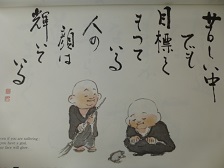 苦しい中
でも
目標を
もって
いる
人の
顔は
輝いて
いる